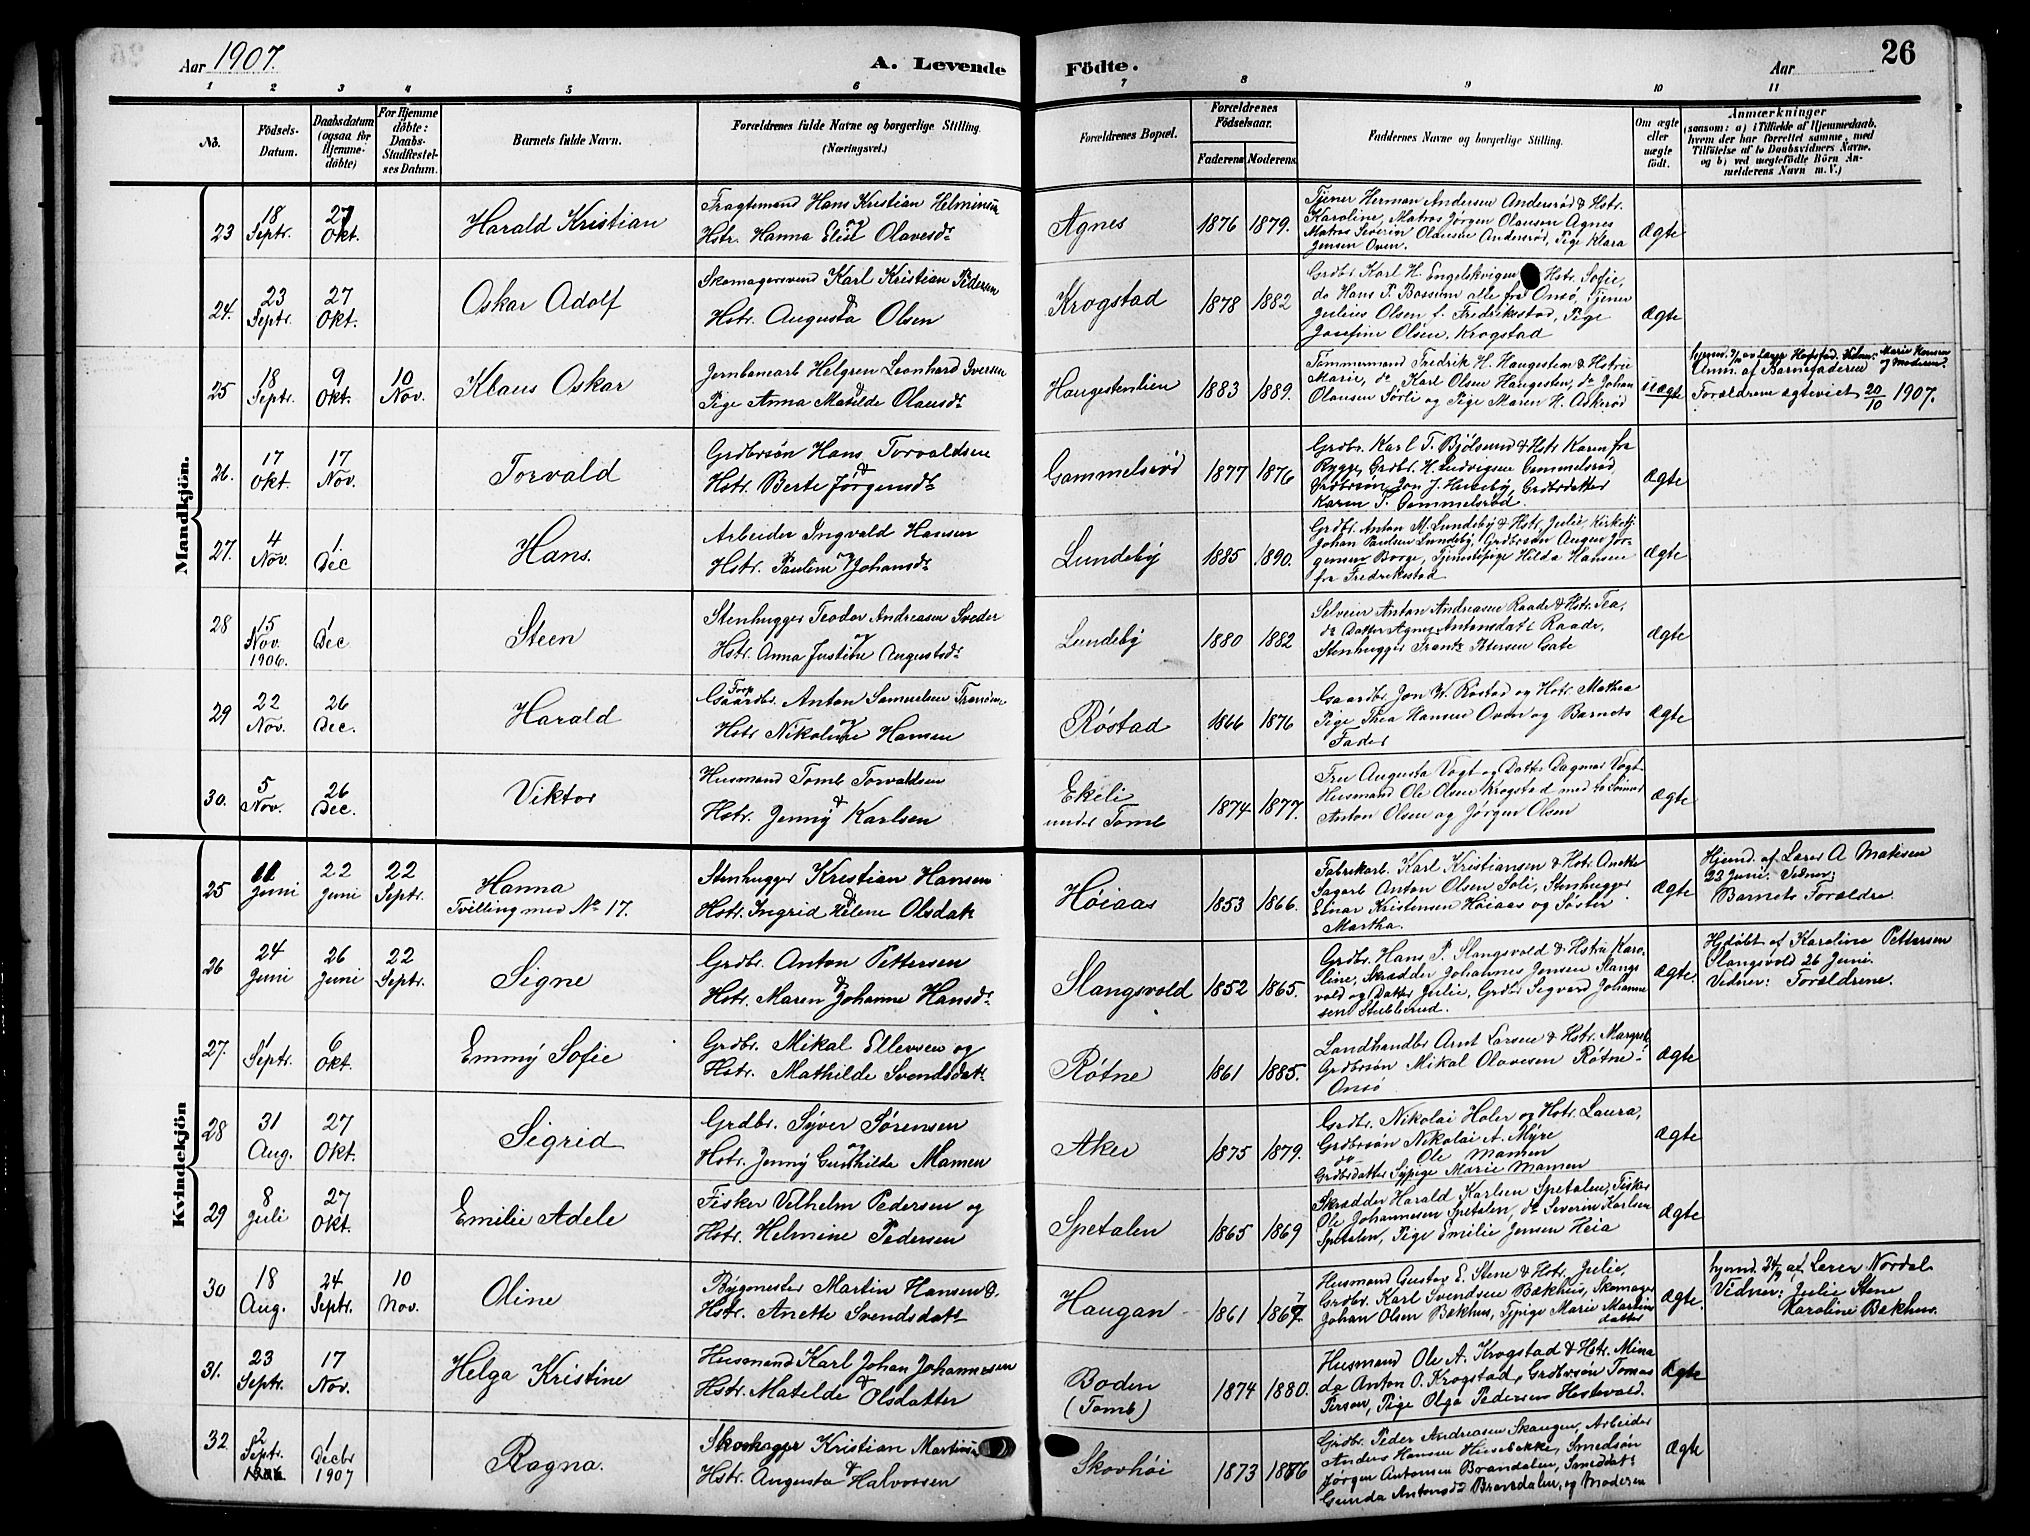 Aar 1907.
A. Levende Födte.
Aar
26
1 2 3 4 5 6 7 8 9 10 11
No.
Födsels-Datum.
Daabsdatum (ogsaa för Hjemme-döbte)
For Hjemme döbte: Daabs-Stadfæstel-ses Datum.
Barnets fulde Navn.
Forældrenes fulde Navne og borgerlige Stilling. (Næringsvei.)
Forældrenes Bopæl.
Forældrenes Födselsaar.
Faderens Moderens
Faddernes Navne og borgerlige Stilling.
Om ægte eller uægte födt.
Anmærkninger
(saasom: a) i Tilfælde af Hjemmedaab. hvem der har forrettet samme, med Tilföielse af to Daabsvidners Navne. og b) ved uægtefödte Börn An-melderens Navn m. V.)
Mandkjön.
23 18 Septr. 27 Okt. Harald Kristian
Fragtemand Hans Kristian Helminsen
og
Hstr. Hanna Elise Olavesdr
Agnes 1876 1879.
Tjener Herman Andersen Andersrød & Hstr.
Karoline, Matros Jørgen Olausen Agnes
Matros Severin Olausen Andersrød, Pige Klara
Jensen Oven.
Ægte
24. 23 Septr. 27 Okt. Oskar Adolf
Skomagersvend Karl Kristian Pedersen
&
Hstr. Augusta Olsen
Krogstad 1878 1882
Grdbr. Karl H. Engelskvigen & Hstr. Sofie,
do Hans P. Bossum alle fra Onsø, Tjener
Julius Olsen f. Fredrikstad, Pige
Josefine Olsen, Krogstad
Ægte
25 18 Septr. 9 Okt. 10 Nov. Klaus Oskar
Jernbanearb Helgren Leonhard Iversen
&
Pige Anna Matilde Olausdr
Haugestenlien 1883 1889.
Tømmermand Fredrik H. Haugesten & Hstru
Marie, do Karl Olsen Haugesten, do Johan
Olausen Sørli og Pige Maren H. Askerød
uægte
Anm. af Barnefaderen og Moderen.
Forældrene ægteviet 20/10 1907.
26. 17 Okt. 17 Nov. Torvald
Grdbrsøn Hans Torvaldsen
&
Hstr. Berte Jørgensdr
Gammelsrød 1877 1876
Grdbr. Karl T. Bjølsund & Hstr Karen fra
Rygge, Grdbr. H. Ludvigsen Gammelsrød,
Grdbrsøn Jon J. Huseby, Grdbrdatter
Karen T. Gammelsrød.
Ægte
27. 4 Nov. 1 Dec Hans.
Arbeider Ingvald Hansen
og
Hstr. Pauline Johansdr
Lundeby 1885 1890.
Grdbr. Anton M. Lundeby & Hstr. Julie, Kirketj.
Johan Paulsen Lundeby, Grdbrsøn August Jør-
gensen Borge, Tjenestepige Hilda Hansen
fra Fredriksstad
Ægte
28 15 Nov. 1906. 1 Dec Steen
Stenhugger Teodor Andreasen Sveder
og
Hstr. Anna Justine Augustsdr
Lundeby 1880 1882
Selveier Anton Andreasen Raade & Hstr. Tea,
do Datter Agnes Antonsdatr Raade,
Stenhugger Frantz Petersen Gate
Ægte
29 22 Nov. 26 Dec. Harald
Forp
Gaardbr. Anton Samuelsen
og
Hstr Nikoline Hansen
Røstad 1866 1876
Gaardbr. Jon W. Røstad og Hstr. Mathea
Pige Thea Hansen Oven og Barnets
Fader
Ægte
30. 5 Nov. 26 Dec. Viktor
Husmand Tomb Torvaldsen
&
Hstr. Jenny Karlsen
Ekeli under Tomb 1874 1877.
Fru Augusta Vogt og Dattr Dagmar Vogt
Husmand Ole Olsen Krogstad med to Sønner
Anton Olsen og Jørgen Olsen
Ægte
Kvindekjön
25 11 Juni 22 Juni 22 Septr. Hanna
Tvilling med No 17.
Stenhugger Kristian Hansen
&
Hstr. Ingrid Helene Olsdatr
Høiaas 1853 1866.
Fabrikarb. Karl Kristiansen & Hstr. Anette
Sagarb Anton Olsen Soli, Stenhugger
Einar Kristensen Høiaas og Søster
Martha.
Ægte
Hjmd. af Lærer A Matisen
23 Juni. Vidner:
Barnets Forældre.
26 24 Juni 26 Juni 22 Septr. Signe
Grdbr. Anton Pettersen
&
Hstr. Maren Johanne Hansdr
Slangsvold 1852 1865.
Grdbr. Hans P. Slangsvold & Hstru Karo-
line, Skrædder Johannes Jensen Slangs
vold og Datter Julie, Grdbr Sigvard Johanne
sen Stubberud.
Ægte.
Hjdøbt af Karoline Pettersen
Slangsvold 26 Juni.
Vidner: Forældrene.
27. 1 Septr. 6 Okt. Emmy Sofie
Grdbr. Mikal Ellevsen og
Hstr. Mathilde Svendsdatr
Røtne 1861 1885.
Landhandler Arnt Larsen & Hstr. Margrete
Grdbrsøn Mikal Olavesen Røtne
Onsø
Ægte
28 31 Aug. 27 Okt. Sigrid
Grdbr. Syver Sørensen
og
Hstr. Jenny Gunhilda Mamen
Aker 1875 1879.
Grdbr. Nikolai Holer og Hstr. Laura,
Grdbrsøn Nikolai A. Myre
do Ole Mamen
Grdbrdatter Sypige Marie Mamen
Ægte
29 8 Juli 27 Okt. Emilie Adele
Fisker Vilhelm Pedersen og
Hstr. Helmine Pedersen
Spetalen 1865 1869
Skrædder Harald Karlsen Spetalen, Fisker
Ole Johannesen Spetalen, do Severin Karlsen
Spetalen, Pige Emilie Jensen Heia
Ægte
30 18 Aug. 24 Septr. 10 Nov. Oline
Bygmester Martin Hansen &
Hstr. Anette Svendsdatr
Haugan 1861 1867
Husmand Gustav E. Stene & Hstr. Julie,
Grdbr. Karl Svendsen Bækhus, Skomager
Johan Olsen Bækhus, Tjpige Marie Martins
datter
Ægte.
hjmd. 24/9 af Lærer Nordal
Vidner: Julie Stene
Karoline Bækhus.
31. 23 Septr. 17 Nov. Helga Kristine
Husmand Karl Johan Johannesen
&
Hstr. Matilde Olsdatter
Boden (Tomb) 1874 1880.
Husmand Ole A. Krogstad & Hstr. Mina
do Anton O. Krogstad, Grdbrsøn Tomas
Person, Pige Olga Pedersen Hestevold.
Ægte
32. 2 Septr. 1 Decbr 1907 Ragna.
Kristian Martinsen
&
Hstr. Augusta Halvorsen
Skovhøi 1873 1876
Grdbr. Peder Andreasen Skaugen, Arbeider
Anders Hansen Husebække, Smedsøn
Jørgen Antonsen Brandalen, Smeddatr
Gunda Antonsdr Brandalen, og Moderen
Ægte